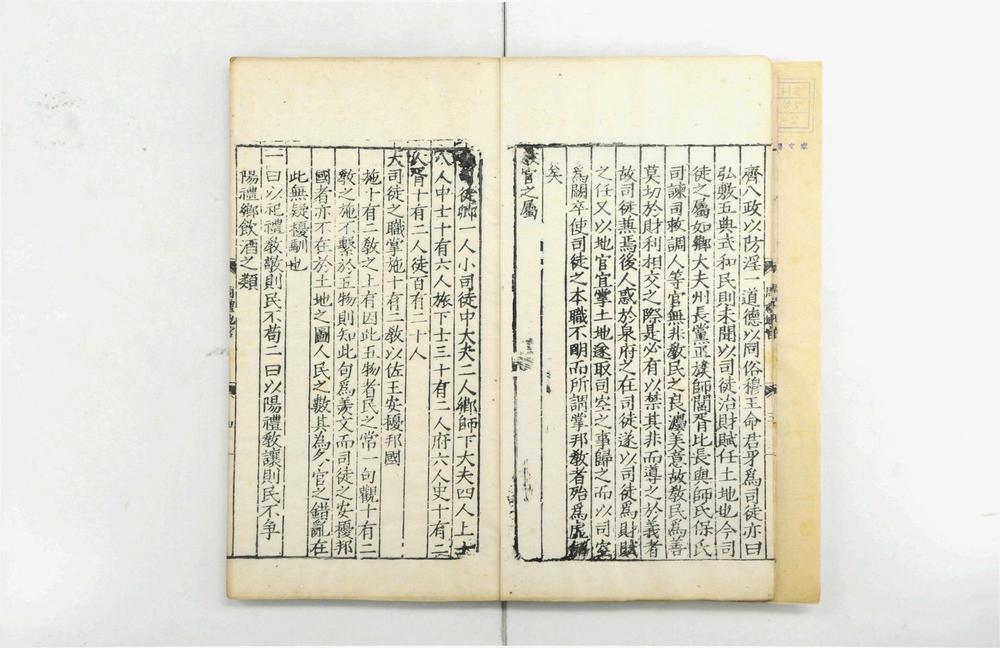 齊八政以防淫一道德以同俗穆王命君牙爲司徒亦曰
弘敷五典式和民則未聞以司徒治財賦任土地也今司
徒之屬如鄉大夫州長黨正族師閭胥比長與師氏保氏
司諫司救調人等官無非敎民之良灋美意故敎民爲善
莫切於財利相交之際是必有以禁其非而導之於義者
故司徒兼焉後人惑於泉府之在司徒遂以司徒爲財賦
之任又以地官宜掌土地遂取司空之事歸之而以司空
爲闕卒使司徒之本職不明而所謂掌邦敎者殆爲虛
矣
官之屬
司徒卿一人小司徒中大夫二人鄉師下大夫四人上士
八人中士十有六人旅下士三十有二人府六人史十有二
人胥十有二人徒百有二十人
大司徒之職掌施十有二敎以佐王安擾邦國
施十有二敎之上有因此五物者民之常一句觀十有二
敎之施不繫於五物則知此句爲羨文而司徒之安擾邦
國者亦不在於土地之圖人民之數其為冬官之錯亂在
此無疑擾馴也
一曰以祀禮敎敬則民不苟二曰以陽禮敎讓則民不爭
陽禮鄉飮酒之類